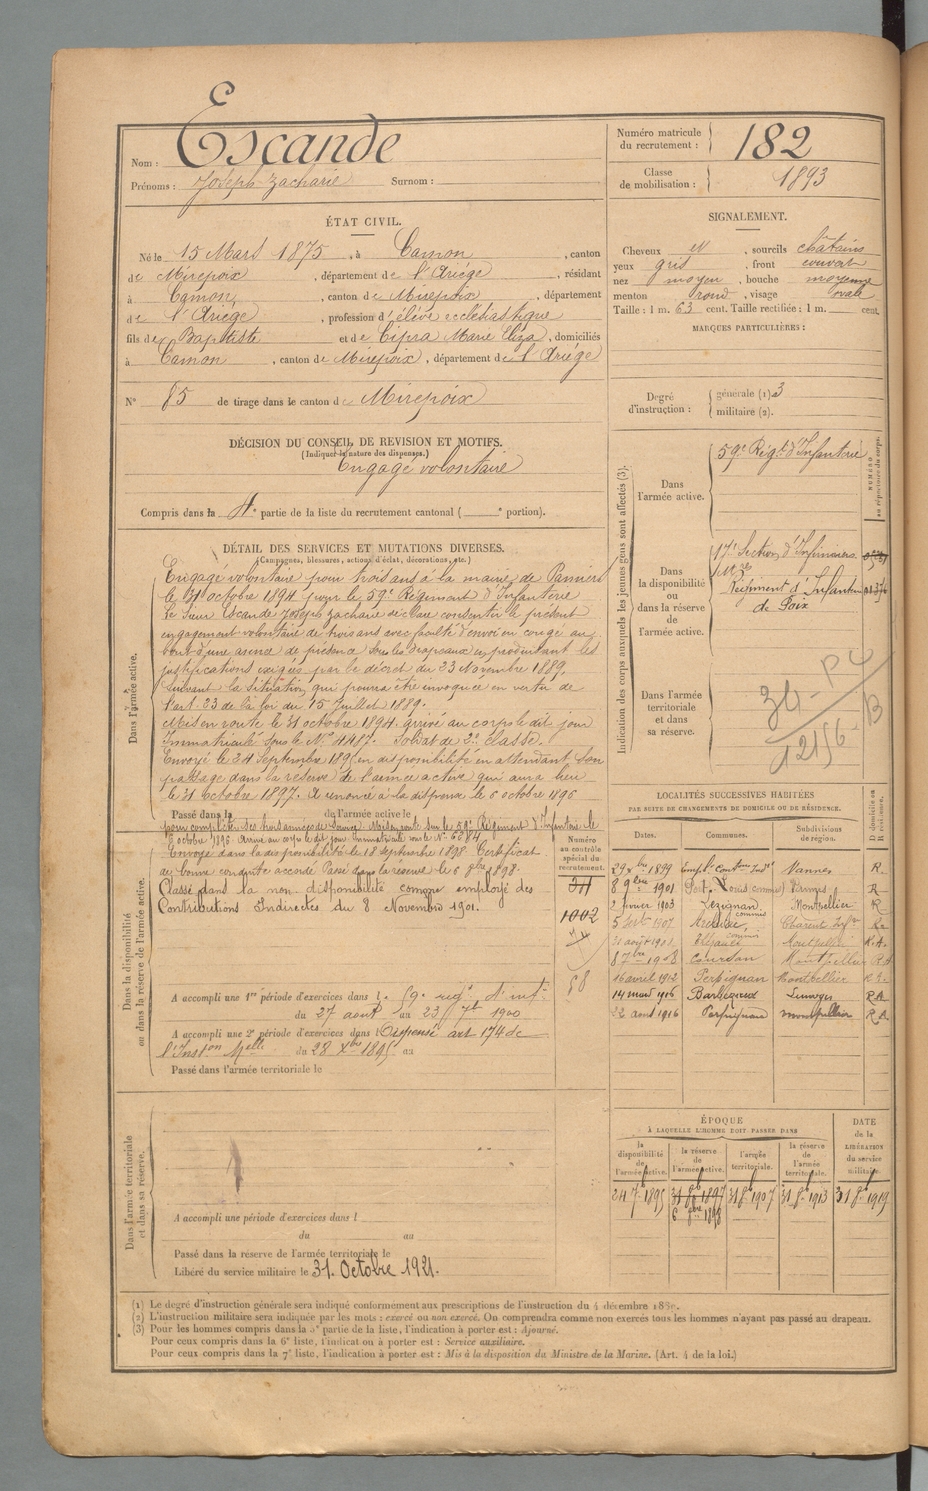 Nom : Escande
Prénoms : Joseph Zacharie Surnom :
Numéro matricule du recrutement : 182
Classe de mobilisation : 1893
ÉTAT CIVIL.
Né le 15 Mars 1875, à Camon, canton
de Mirepoix, département de l'Ariége, résidant
à Camon, canton de Mirepoix, département
de l'Ariége, profession d'élève ecclésiastique
fils de Baptiste et de Cipra Marie Eliza, domiciliés
à Camon, canton de Mirepoix, département de l'Ariége
N° 85 de tirage dans le canton de Mirepoix
SIGNALEMENT.
Cheveux , sourcils châtains
yeux gris, front couvert
nez moyen, bouche moyenne
menton rond, visage ovale
Taille : 1 m. 63 cent. Taille rectifiée : 1 m. cent.
MARQUES PARTICULIÈRES :
Degré d'instruction : générale (1) 3
militaire (2).
DÉCISION DU CONSEIL DE REVISION ET MOTIFS.
(Indiquer la nature des dispenses.)
Engagé volontaire
Compris dans la 4e partie de la liste du recrutement cantonal ( e portion).
DÉTAIL DES SERVICES ET MUTATIONS DIVERSES.
(Campagnes, blessures, actions d'éclat, décorations, etc.)
Dans l'armée active.
Engagé volontaire pour trois ans à la mairie de Pamiers
le 31 octobre 1894 pour le 59e Régiment d'Infanterie
Le Sieur Escande Joseph Zacharie déclare consentir le présent
engagement volontaire de trois ans avec faculté d'envoi en congé au
bout d'une année de présence sous les drapeaux en produisant les
justifications exigées par le décret du 23 Novembre 1889,
suivant la situation qui pourra être invoquée en vertu de
l'art. 23 de la loi du 15 Juillet 1889.
Mis en route le 31 octobre 1894. arrivé au corps le dit jour
Immatriculé sous le N° 4487. Soldat de 2e classe.
Envoyé le 24 Septembre 1895 en disponibilité en attendant son
passage dans la réserve de l'armée active qui aura lieu
le 31 Octobre 1897. A renoncé à la dispense le 6 octobre 1896
Passé dans la de l'armée active le
pour compléter ses trois années de service. Mis en route sur le 59e Régiment d'Infanterie le
6 octobre 1896. Arrivé au corps le dit jour. Immatriculé sous le N°
Dans la disponibilité ou dans la réserve de l'armée active.
Envoyé dans la disponibilité le 18 septembre 1898. Certificat
de bonne conduite accordé. Passé dans la réserve le 6 8bre 1898.
Classé dans la non disponibilité comme employé des
Contributions Indirectes du 8 Novembre 1901.
A accompli une 1re période d'exercices dans l. 59e régt d'inft
du 27 août au 23 7bre 1900
A accompli une 2e période d'exercices dans l Dispensé art 174 de
l'Inston Melle du 28 Xbre 1895 au
Passé dans l'armée territoriale le
Numéro au contrôle spécial du recrutement.
1002
Dans l'armée territoriale et dans sa réserve.
A accompli une période d'exercices dans l
du au
Passé dans la réserve de l'armée territoriale le
Libéré du service militaire le 31. Octobre 1921.
Indication des corps auxquels les jeunes gens sont affectés (3).
NUMÉRO au répertoire du corps.
Dans l'armée active.
59e Régt d'Infanterie
Dans la disponibilité ou dans la réserve de l'armée active.
17e Section d'Infirmiers
Régiment d'Infanterie
de Foix
Dans l'armée territoriale et dans sa réserve.
LOCALITÉS SUCCESSIVES HABITÉES
PAR SUITE DE CHANGEMENTS DE DOMICILE OU DE RÉSIDENCE.
Dates. Communes. Subdivisions de région. D domicile ou R résidence.
29 Xbre 1899 Vannes R.
8 9bre 1901 Port-Louis Vannes R
2 février 1903 Lézignan Montpellier R
5 Sept 1907 R
Montpellier R.A.
8 7bre 1908 Coursan Montpellier R.A
16 avril 1912 Perpignan Montpellier
14 mars 1916 Barbezieux Limoges R.A
22 aout 1916 Perpignan Montpellier R.A.
ÉPOQUE
À LAQUELLE L'HOMME DOIT PASSER DANS
la disponibilité de l'armée active. la réserve de l'armée active. l'armée territoriale. la réserve de l'armée territoriale. DATE de la LIBÉRATION du service militaire.
24 7bre 1895 31 8bre 1897 31 8bre 1907 31 8bre 1913 31 8bre 1919
6 8bre 1898
(1) Le degré d'instruction générale sera indiqué conformément aux prescriptions de l'instruction du 4 décembre 1889.
(2) L'instruction militaire sera indiquée par les mots : exercé ou non exercé. On comprendra comme non exercés tous les hommes n'ayant pas passé au drapeau.
(3) Pour les hommes compris dans la 5e partie de la liste, l'indication à porter est : Ajourné.
Pour ceux compris dans la 6e liste, l'indication à porter est : Service auxiliaire.
Pour ceux compris dans la 7e liste, l'indication à porter est : Mis à la disposition du Ministre de la Marine. (Art. 4 de la loi.)